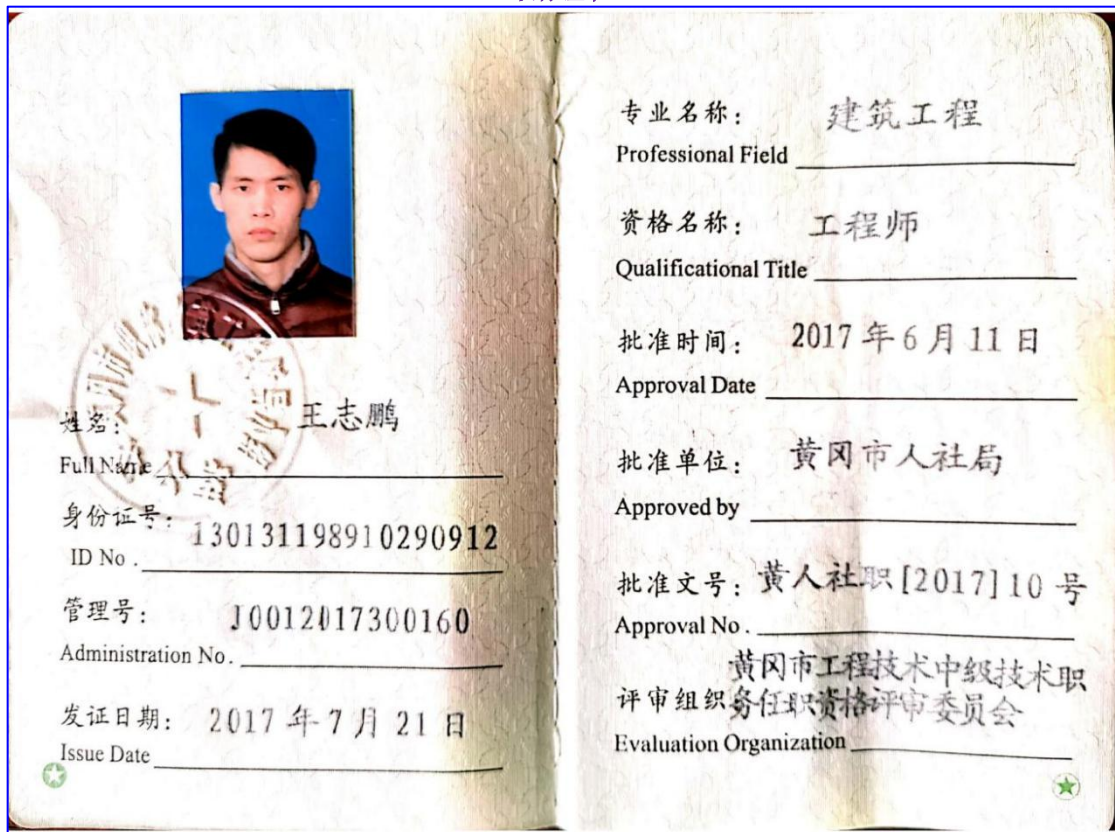 姓名：王志鹏
Full Name
身份证号：130131198910290912
ID No.
管理号：J0012017300160
Administration No.
发证日期：2017 年 7 月 21 日
Issue Date
专业名称：建筑工程
Professional Field
资格名称：工程师
Qualificational Title
批准时间：2017 年 6 月 11 日
Approval Date
批准单位：黄冈市人社局
Approved by
批准文号：黄人社职[2017]10 号
Approval No.
黄冈市工程技术中级技术职
评审组织 务任职资格评审委员会
Evaluation Organization